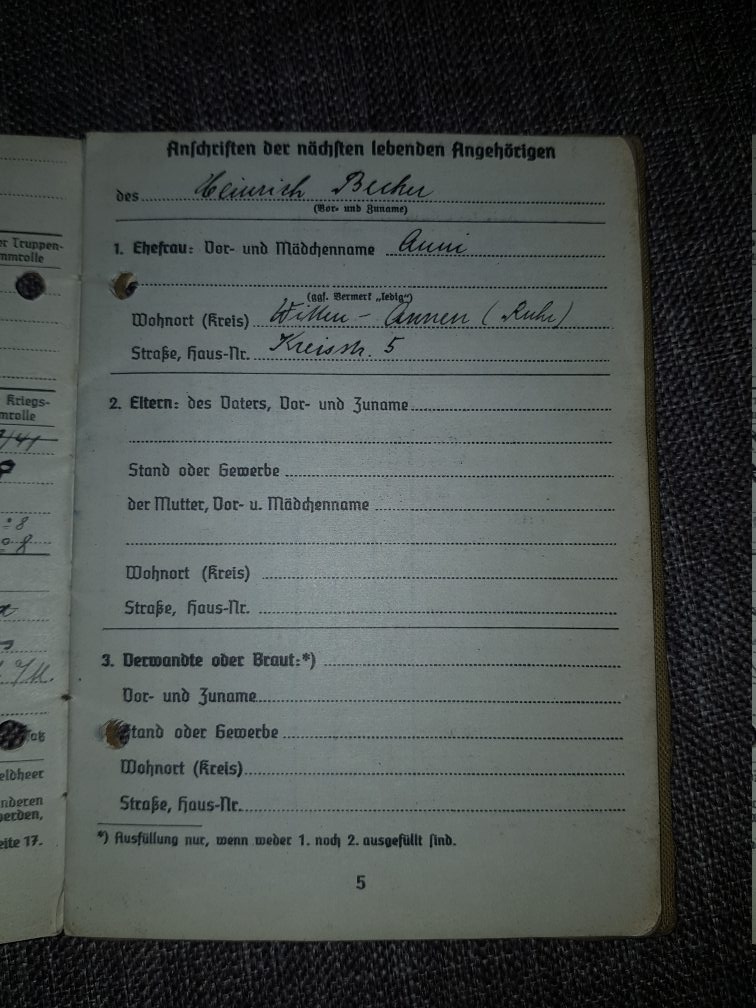 Anschriften der nächsten lebenden Angehörigen
des Heinrich Becker
(Vor- und Zuname)
1. Ehefrau: Vor- und Mädchenname Anni
(ggf. Vermerk „ledig“)
Wohnort (Kreis) Witten - Annen (Ruhr)
Straße, Haus-Nr. Kreisstr. 5
2. Eltern: des Vaters, Vor- und Zuname
Stand oder Gewerbe
der Mutter, Vor- u. Mädchenname
Wohnort (Kreis)
Straße, Haus-Nr.
3. Verwandte oder Braut:*)
Vor- und Zuname
Stand oder Gewerbe
Wohnort (Kreis)
Straße, Haus-Nr.
*) Ausfüllung nur, wenn weder 1. noch 2. ausgefüllt sind.
5
Truppen-
Kriegs-
eldheer
nderen
erden,
eite 17.